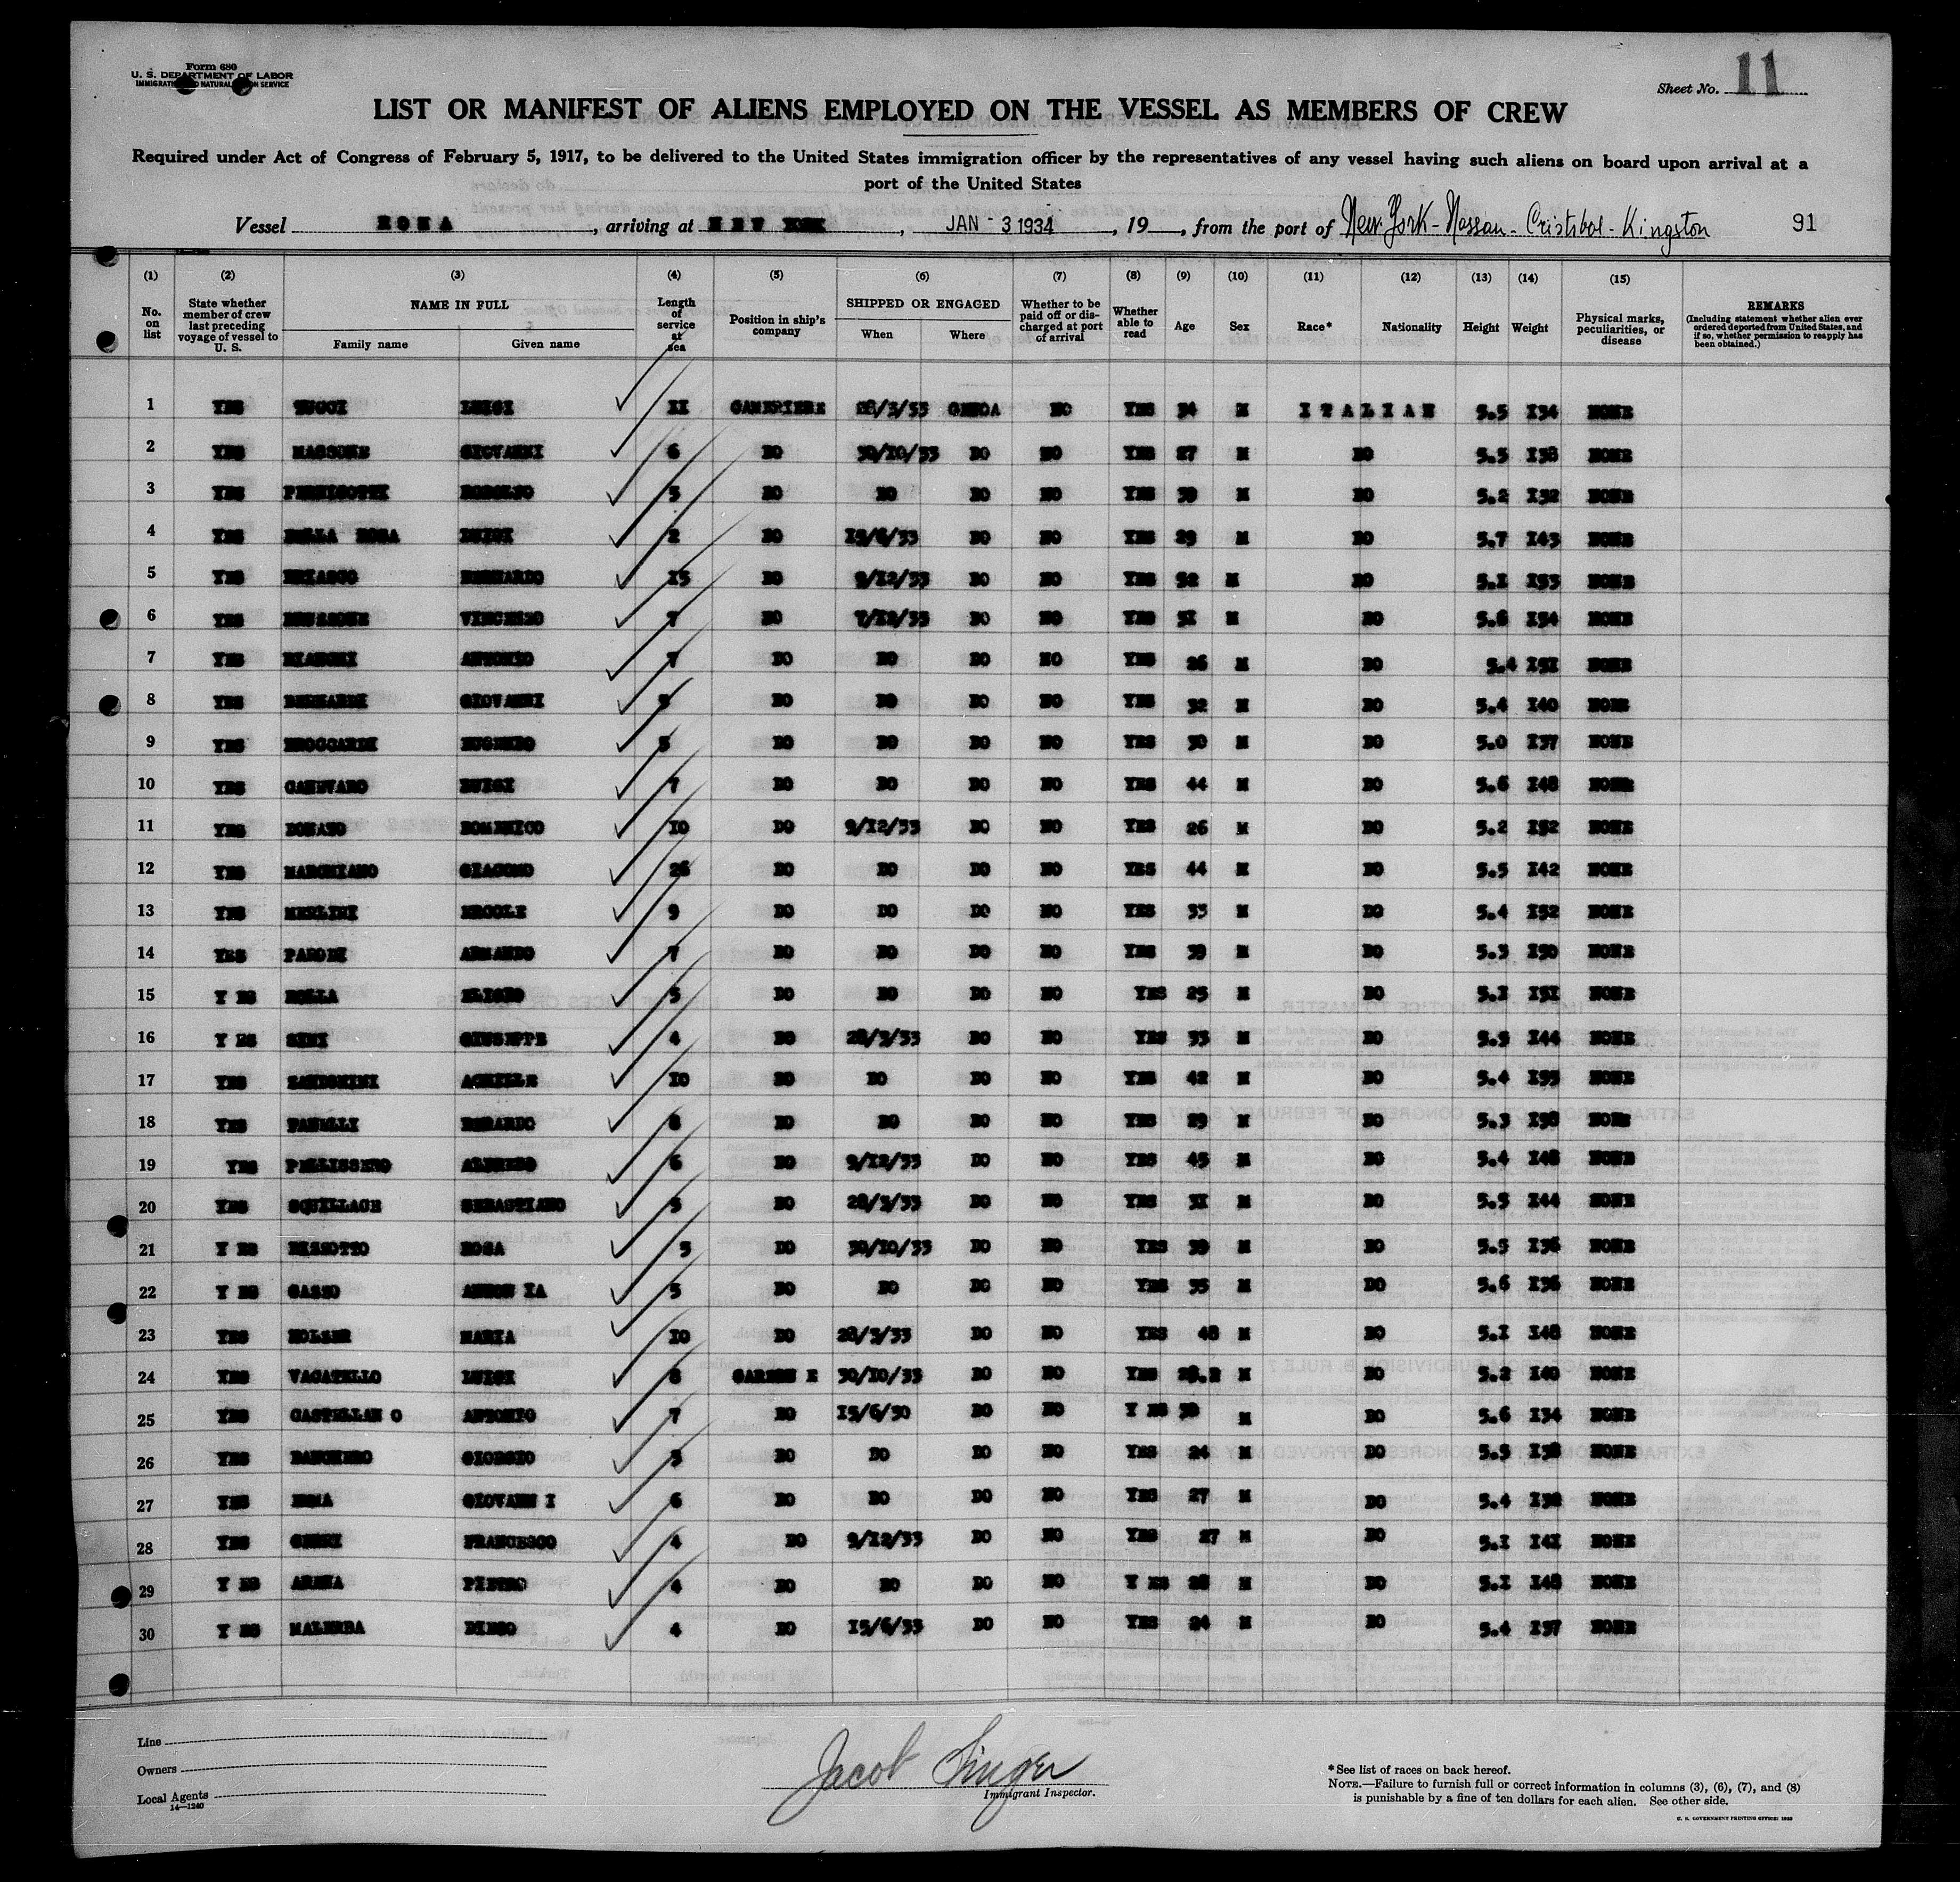 Form 680
U. S. DEPARTMENT OF LABOR
Sheet No. 11
LIST OR MANIFEST OF ALIENS EMPLOYED ON THE VESSEL AS MEMBERS OF CREW
Required under Act of Congress of February 5, 1917, to be delivered to the United States immigration officer by the representatives of any vessel having such aliens on board upon arrival at a
port of the United States
Vessel ROMA, arriving at NEW YORK, JAN - 3 1934, 19, from the port of New York - Nassau - Cristobal - Kingston 91
(1) (2) (3) (4) (5) (6) (7) (8) (9) (10) (11) (12) (13) (14) (15)
No. on list
State whether member of crew last preceding voyage of vessel to U. S.
NAME IN FULL
Family name Given name
Length of service at sea
Position in ship's company
SHIPPED OR ENGAGED
When Where
Whether to be paid off or discharged at port of arrival
Whether able to read
Age
Sex
Race*
Nationality
Height
Weight
Physical marks, peculiarities, or disease
REMARKS
(Including statement whether alien ever ordered deported from United States, and if so, whether permission to reapply has been obtained.)
1 YES TUCCI LUIGI II 28/3/33 GENOA NO YES 34 M ITALIAN 5.5 I34 NONE
2 YES MASSONE GIOVANNI 6 DO 30/10/33 DO NO YES 27 M DO 5.5 I38 NONE
3 YES 5 DO DO DO NO YES 39 M DO 5.2 I32 NONE
4 YES DELLA ROSA LUIGI 2 DO I5/6/33 DO NO YES 29 M DO 5.7 I43 NONE
5 YES I5 DO 9/I2/33 DO NO YES M DO 5.I I53 NONE
6 YES VINCENZO 7 DO 7/I2/33 DO NO YES 3I M DO 5.6 I54 NONE
7 YES BIANCHI ANTONIO 7 DO DO DO NO YES 26 M DO 5.4 I5I NONE
8 YES BERNARDI GIOVANNI DO DO DO NO YES 32 M DO 5.4 I40 NONE
9 YES BROCCARDI EUGENIO DO DO DO NO YES 30 M DO 5.0 I37 NONE
10 YES CANEVARO LUIGI 7 DO DO DO NO YES 44 M DO 5.6 I48 NONE
11 YES DONATO DOMENICO IO DO 9/I2/33 DO NO YES 26 M DO 5.2 I52 NONE
12 YES MARCHIANO GIACOMO 26 DO DO DO NO YES 44 M DO 5.5 I42 NONE
13 YES MERLINI ERCOLE 9 DO DO DO NO YES 33 M DO 5.4 I52 NONE
14 YES PARODI ARMANDO 7 DO DO DO NO YES 39 M DO 5.3 I50 NONE
15 Y ES ELIGIO 5 DO DO DO NO YES 25 M DO 5.I I5I NONE
16 Y ES SINI GIUSEPPE 4 DO 28/3/33 DO NO YES 33 M DO 5.5 I44 NONE
17 YES ACHILLE IO DO DO DO NO YES 42 M DO 5.4 I55 NONE
18 YES PANELLI DO DO DO NO YES 29 M DO 5.3 I38 NONE
19 YES PELLISSERO ALFREDO 6 DO 9/I2/33 DO NO YES 45 M DO 5.4 I48 NONE
20 YES SQUILLACE SEBASTIANO 5 DO 28/3/33 DO NO YES 3I M DO 5.5 I44 NONE
21 Y ES ROSA 5 DO 30/IO/33 DO NO YES 39 M DO 5.5 I36 NONE
22 Y ES GASSO 5 DO DO DO NO YES 35 M DO 5.6 I36 NONE
23 YES HOLSER MARIA IO DO 28/3/33 DO NO YES 48 M DO 5.I I48 NONE
24 YES VACATELLO LUIGI 8 30/IO/33 DO NO YES M DO 5.2 I40 NONE
25 YES CASTELLAN O ANTONIO 7 DO I5/6/30 DO NO Y ES 30 M DO 5.6 I34 NONE
26 YES BANCHERO GIORGIO DO DO DO NO YES 24 M DO 5.5 I38 NONE
27 YES GIOVANN I 6 DO DO DO NO YES 27 M DO 5.4 I38 NONE
28 YES FRANCESCO 4 DO 9/I2/33 DO NO YES 27 M DO 5.I I4I NONE
29 Y ES ARENA PIETRO 4 DO DO DO NO Y ES 28 M DO 5.I I48 NONE
30 Y ES MALERBA DIEGO 4 DO I5/6/33 DO NO YES 24 M DO 5.4 I37 NONE
Line
Owners
Local Agents
14—1240
Jacob Singer
Immigrant Inspector.
*See list of races on back hereof.
NOTE.—Failure to furnish full or correct information in columns (3), (6), (7), and (8)
is punishable by a fine of ten dollars for each alien. See other side.